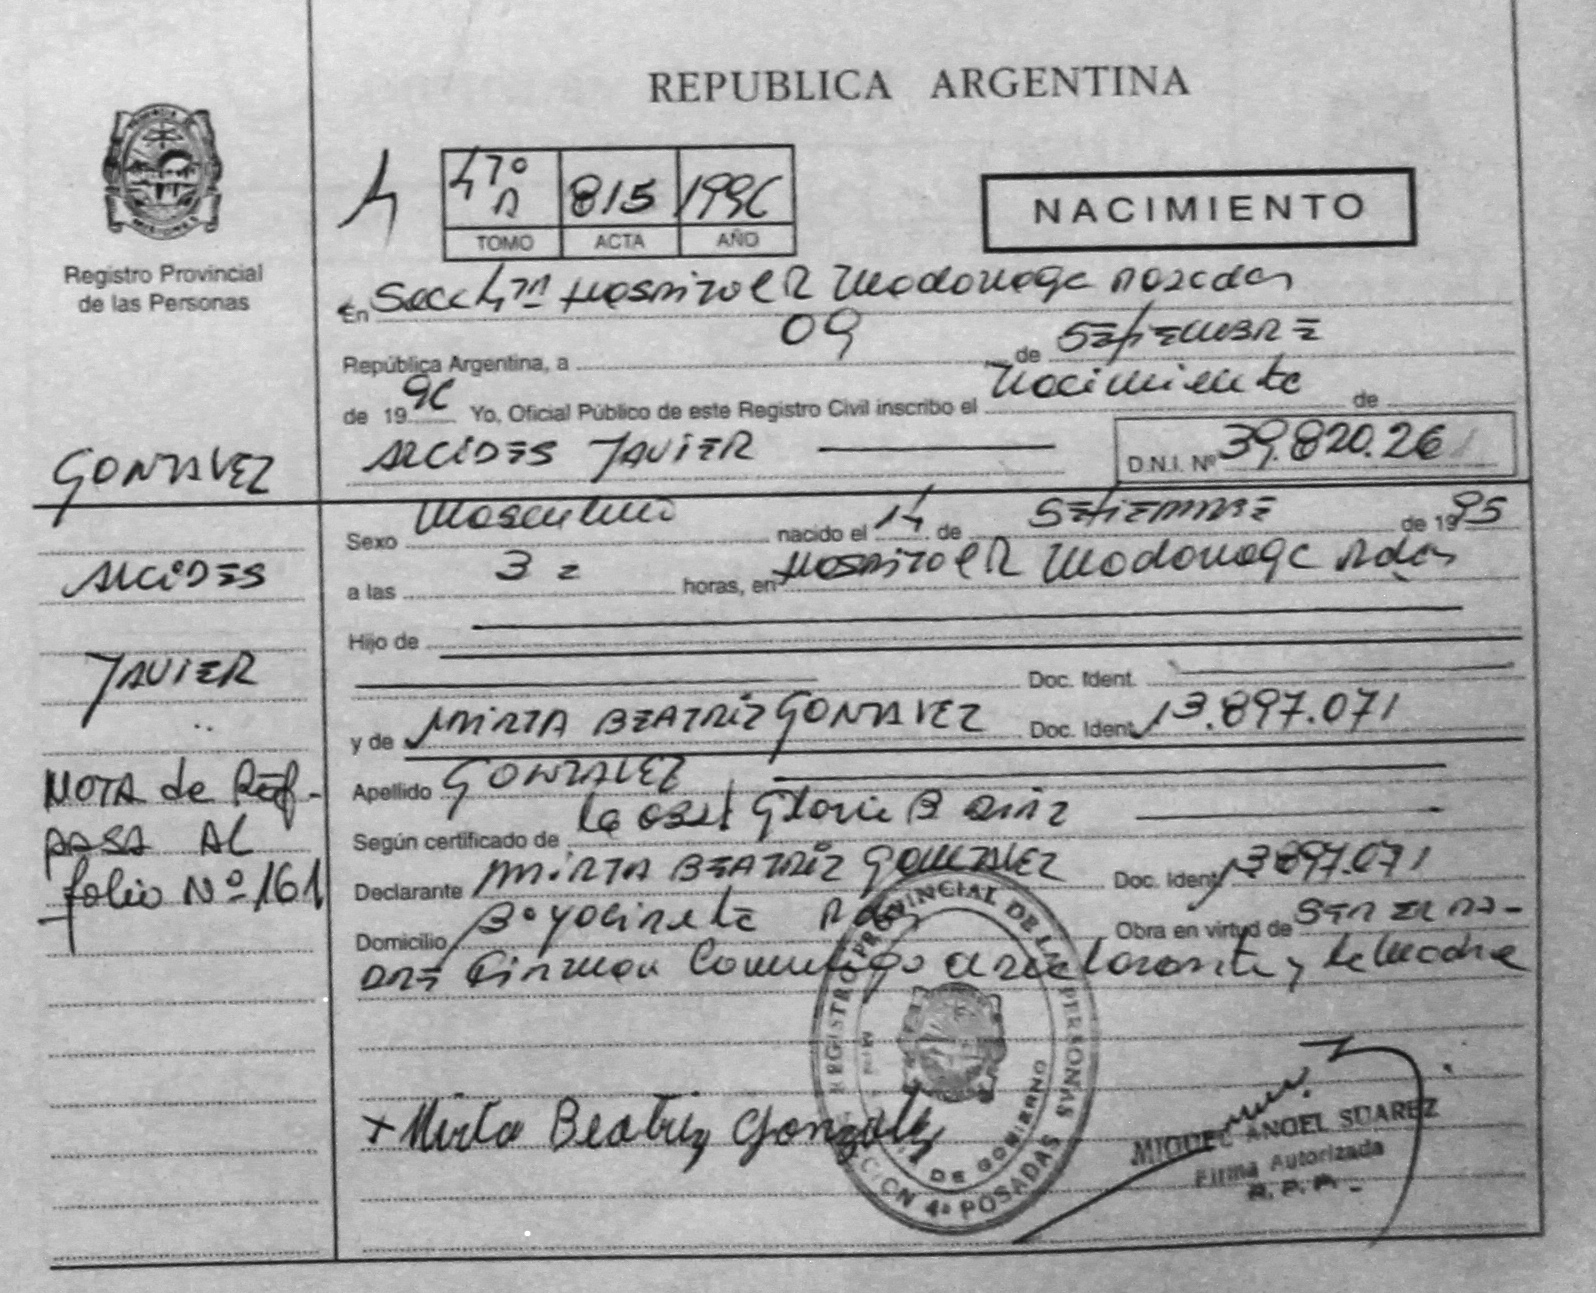 REPUBLICA ARGENTINA
4
47º A 815 1996
TOMO ACTA AÑO
NACIMIENTO
Registro Provincial
de las Personas
En Secc 4ta Hospital R Madariaga Posadas
República Argentina, a 09 de SETIEMBRE
de 1996 Yo, Oficial Público de este Registro Civil inscribo el Nacimiento de
ALCIDES JAVIER D.N.I. Nº 39.820.26
GONZALEZ
ALCIDES
JAVIER
NOTA de Ref.
PASA AL
folio Nº 161
Sexo Masculino nacido el 14 de SETIEMBRE de 1995
a las 3 horas, en Hospital R Madariaga Pdas
Hijo de
Doc. Ident.
y de MIRTA BEATRIZ GONZALEZ Doc. Ident. 13.897.071
Apellido GONZALEZ
Según certificado de la Obst Gloria B
Declarante MIRTA BEATRIZ GONZALEZ Doc. Ident. 13.897.071
Domicilio Bº Yacireta Pdas Obra en virtud de SER EL PA-
DRE Firman Conmigo declarante y la Madre
REGISTRO PROVINCIAL DE LAS PERSONAS
DE GOBIERNO
SECCION 4ª POSADAS
+ Mirta Beatriz Gonzalez
MIGUEL ANGEL SUAREZ
Firma Autorizada
R. P. P.